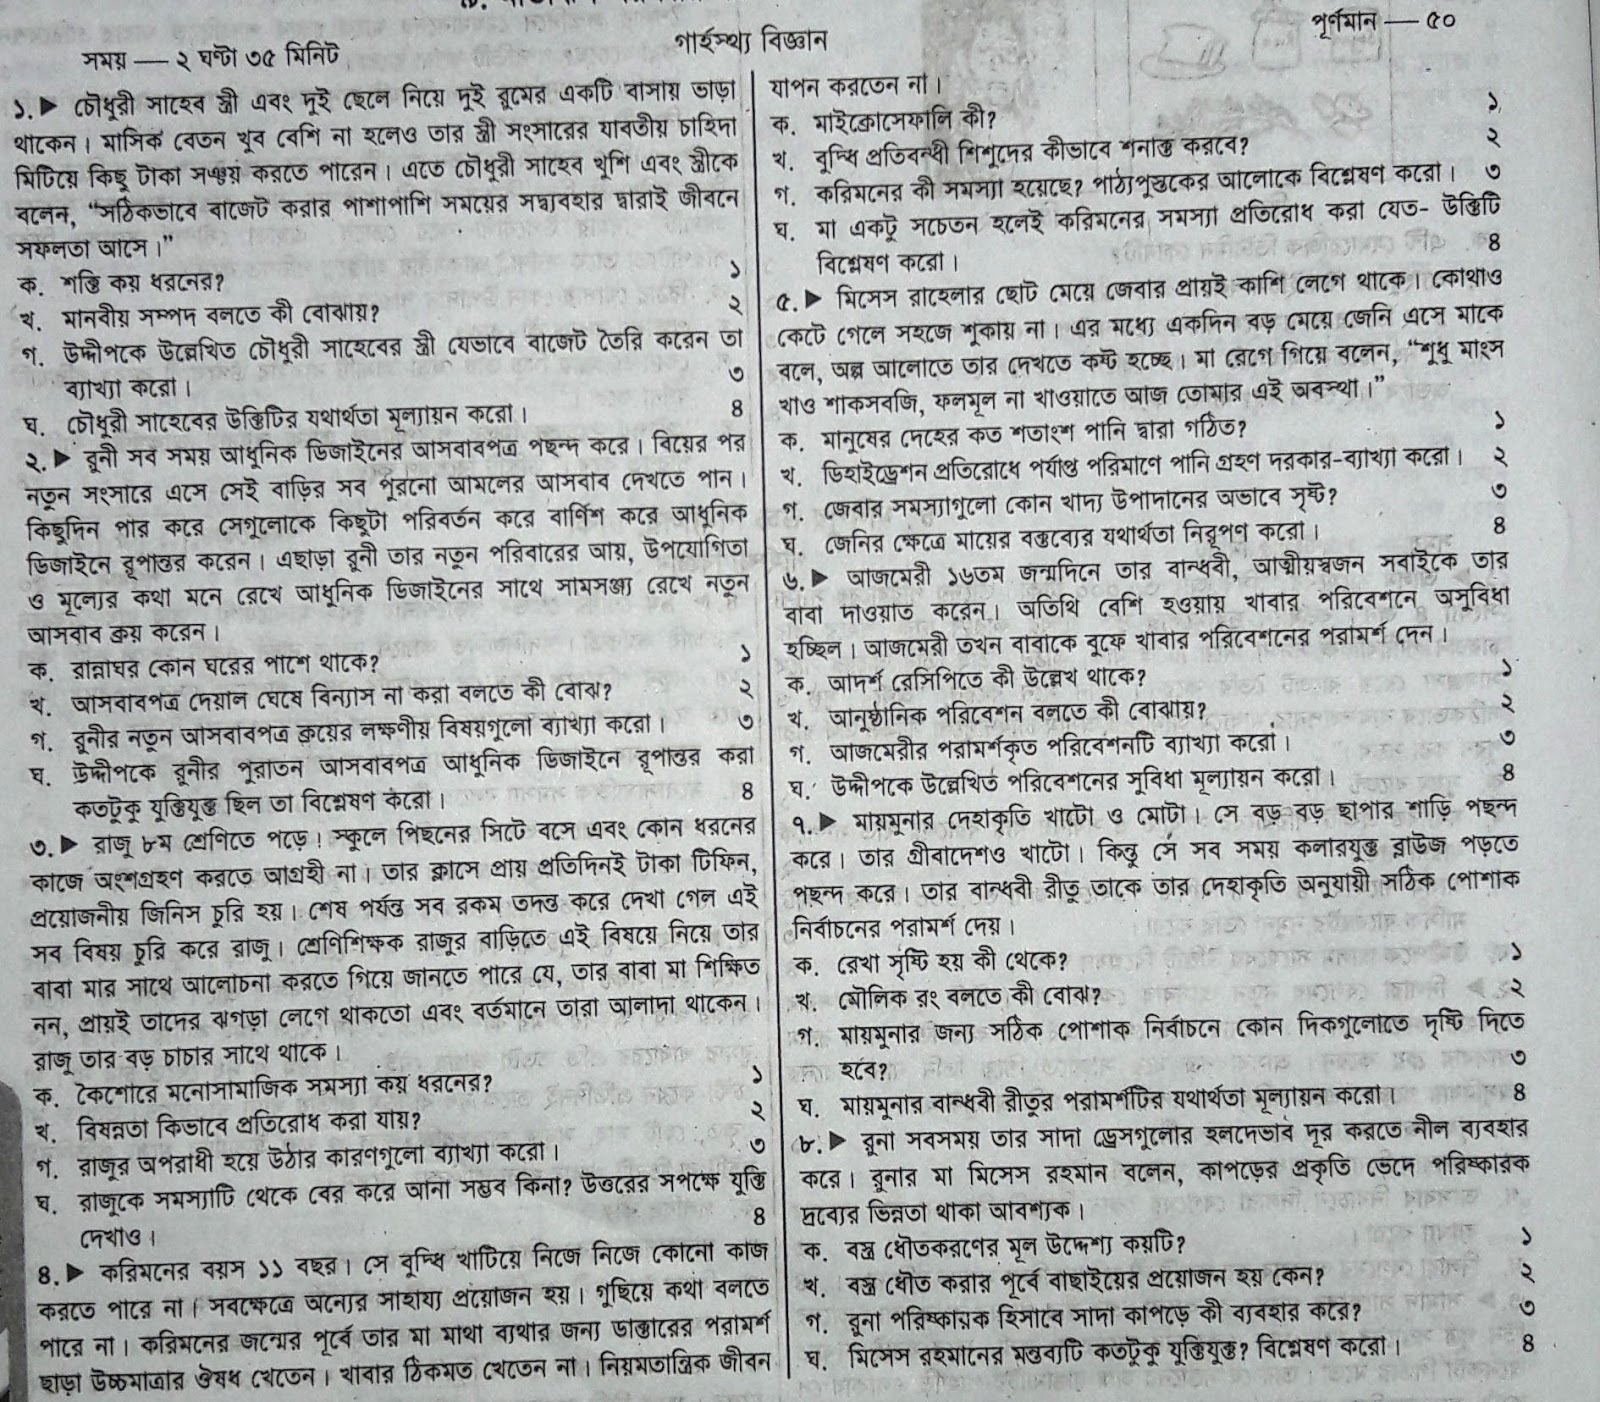 পূর্ণমান — ৫০
গার্হস্থ্য বিজ্ঞান
সময় — ২ ঘণ্টা ৩৫ মিনিট
১.▶ চৌধুরী সাহেব স্ত্রী এবং দুই ছেলে নিয়ে দুই রুমের একটি বাসায় ভাড়া
থাকেন। মাসিক বেতন খুব বেশি না হলেও তার স্ত্রী সংসারের যাবতীয় চাহিদা
মিটিয়ে কিছু টাকা সঞ্চয় করতে পারেন। এতে চৌধুরী সাহেব খুশি এবং স্ত্রীকে
বলেন, “সঠিকভাবে বাজেট করার পাশাপাশি সময়ের সদ্ব্যবহার দ্বারাই জীবনে
সফলতা আসে।”
ক. শক্তি কয় ধরনের? ১
খ. মানবীয় সম্পদ বলতে কী বোঝায়? ২
গ. উদ্দীপকে উল্লেখিত চৌধুরী সাহেবের স্ত্রী যেভাবে বাজেট তৈরি করেন তা
ব্যাখ্যা করো। ৩
ঘ. চৌধুরী সাহেবের উক্তিটির যথার্থতা মূল্যায়ন করো। ৪
২.▶ রুনী সব সময় আধুনিক ডিজাইনের আসবাবপত্র পছন্দ করে। বিয়ের পর
নতুন সংসারে এসে সেই বাড়ির সব পুরনো আমলের আসবাব দেখতে পান।
কিছুদিন পার করে সেগুলোকে কিছুটা পরিবর্তন করে বার্ণিশ করে আধুনিক
ডিজাইনে রূপান্তর করেন। এছাড়া রুনী তার নতুন পরিবারের আয়, উপযোগিতা
ও মূল্যের কথা মনে রেখে আধুনিক ডিজাইনের সাথে সামসঞ্জ্য রেখে নতুন
আসবাব ক্রয় করেন।
ক. রান্নাঘর কোন ঘরের পাশে থাকে? ১
খ. আসবাবপত্র দেয়াল ঘেষে বিন্যাস না করা বলতে কী বোঝ? ২
গ. রুনীর নতুন আসবাবপত্র ক্রয়ের লক্ষণীয় বিষয়গুলো ব্যাখ্যা করো। ৩
ঘ. উদ্দীপকে রুনীর পুরাতন আসবাবপত্র আধুনিক ডিজাইনে রূপান্তর করা
কতটুকু যুক্তিযুক্ত ছিল তা বিশ্লেষণ করো। ৪
৩.▶ রাজু ৮ম শ্রেণিতে পড়ে। স্কুলে পিছনের সিটে বসে এবং কোন ধরনের
কাজে অংশগ্রহণ করতে আগ্রহী না। তার ক্লাসে প্রায় প্রতিদিনই টাকা টিফিন,
প্রয়োজনীয় জিনিস চুরি হয়। শেষ পর্যন্ত সব রকম তদন্ত করে দেখা গেল এই
সব বিষয় চুরি করে রাজু। শ্রেণিশিক্ষক রাজুর বাড়িতে এই বিষয়ে নিয়ে তার
বাবা মার সাথে আলোচনা করতে গিয়ে জানতে পারে যে, তার বাবা মা শিক্ষিত
নন, প্রায়ই তাদের ঝগড়া লেগে থাকতো এবং বর্তমানে তারা আলাদা থাকেন।
রাজু তার বড় চাচার সাথে থাকে।
ক. কৈশোরে মনোসামাজিক সমস্যা কয় ধরনের? ১
খ. বিষন্নতা কিভাবে প্রতিরোধ করা যায়? ২
গ. রাজুর অপরাধী হয়ে উঠার কারণগুলো ব্যাখ্যা করো। ৩
ঘ. রাজুকে সমস্যাটি থেকে বের করে আনা সম্ভব কিনা? উত্তরের সপক্ষে যুক্তি
দেখাও। ৪
৪.▶ করিমনের বয়স ১১ বছর। সে বুদ্ধি খাটিয়ে নিজে নিজে কোনো কাজ
করতে পারে না। সবক্ষেত্রে অন্যের সাহায্য প্রয়োজন হয়। গুছিয়ে কথা বলতে
পারে না। করিমনের জন্মের পূর্বে তার মা মাথা ব্যথার জন্য ডাক্তারের পরামর্শ
ছাড়া উচ্চমাত্রার ঔষধ খেতেন। খাবার ঠিকমত খেতেন না। নিয়মতান্ত্রিক জীবন
যাপন করতেন না।
ক. মাইক্রোসেফালি কী? ১
খ. বুদ্ধি প্রতিবন্ধী শিশুদের কীভাবে শনাক্ত করবে? ২
গ. করিমনের কী সমস্যা হয়েছে? পাঠ্যপুস্তকের আলোকে বিশ্লেষণ করো। ৩
ঘ. মা একটু সচেতন হলেই করিমনের সমস্যা প্রতিরোধ করা যেত- উক্তিটি
বিশ্লেষণ করো। ৪
৫.▶ মিসেস রাহেলার ছোট মেয়ে জেবার প্রায়ই কাশি লেগে থাকে। কোথাও
কেটে গেলে সহজে শুকায় না। এর মধ্যে একদিন বড় মেয়ে জেনি এসে মাকে
বলে, অল্প আলোতে তার দেখতে কষ্ট হচ্ছে। মা রেগে গিয়ে বলেন, “শুধু মাংস
খাও শাকসবজি, ফলমূল না খাওয়াতে আজ তোমার এই অবস্থা।”
ক. মানুষের দেহের কত শতাংশ পানি দ্বারা গঠিত? ১
খ. ডিহাইড্রেশন প্রতিরোধে পর্যাপ্ত পরিমাণে পানি গ্রহণ দরকার-ব্যাখ্যা করো। ২
গ. জেবার সমস্যাগুলো কোন খাদ্য উপাদানের অভাবে সৃষ্ট? ৩
ঘ. জেনির ক্ষেত্রে মায়ের বক্তব্যের যথার্থতা নিরূপণ করো। ৪
৬.▶ আজমেরী ১৬তম জন্মদিনে তার বান্ধবী, আত্মীয়স্বজন সবাইকে তার
বাবা দাওয়াত করেন। অতিথি বেশি হওয়ায় খাবার পরিবেশনে অসুবিধা
হচ্ছিল। আজমেরী তখন বাবাকে বুফে খাবার পরিবেশনের পরামর্শ দেন।
ক. আদর্শ রেসিপিতে কী উল্লেখ থাকে? ১
খ. আনুষ্ঠানিক পরিবেশন বলতে কী বোঝায়? ২
গ. আজমেরীর পরামর্শকৃত পরিবেশনটি ব্যাখ্যা করো। ৩
ঘ. উদ্দীপকে উল্লেখিত পরিবেশনের সুবিধা মূল্যায়ন করো। ৪
৭.▶ মায়মুনার দেহাকৃতি খাটো ও মোটা। সে বড় বড় ছাপার শাড়ি পছন্দ
করে। তার গ্রীবাদেশও খাটো। কিন্তু সে সব সময় কলারযুক্ত ব্লাউজ পড়তে
পছন্দ করে। তার বান্ধবী রীতু তাকে তার দেহাকৃতি অনুযায়ী সঠিক পোশাক
নির্বাচনের পরামর্শ দেয়।
ক. রেখা সৃষ্টি হয় কী থেকে? ১
খ. মৌলিক রং বলতে কী বোঝ? ২
গ. মায়মুনার জন্য সঠিক পোশাক নির্বাচনে কোন দিকগুলোতে দৃষ্টি দিতে
হবে? ৩
ঘ. মায়মুনার বান্ধবী রীতুর পরামর্শটির যথার্থতা মূল্যায়ন করো। ৪
৮.▶ রুনা সবসময় তার সাদা ড্রেসগুলোর হলদেভাব দূর করতে নীল ব্যবহার
করে। রুনার মা মিসেস রহমান বলেন, কাপড়ের প্রকৃতি ভেদে পরিষ্কারক
দ্রব্যের ভিন্নতা থাকা আবশ্যক।
ক. বস্ত্র ধৌতকরণের মূল উদ্দেশ্য কয়টি? ১
খ. বস্ত্র ধৌত করার পূর্বে বাছাইয়ের প্রয়োজন হয় কেন? ২
গ. রুনা পরিষ্কারক হিসাবে সাদা কাপড়ে কী ব্যবহার করে? ৩
ঘ. মিসেস রহমানের মন্তব্যটি কতটুকু যুক্তিযুক্ত? বিশ্লেষণ করো। ৪